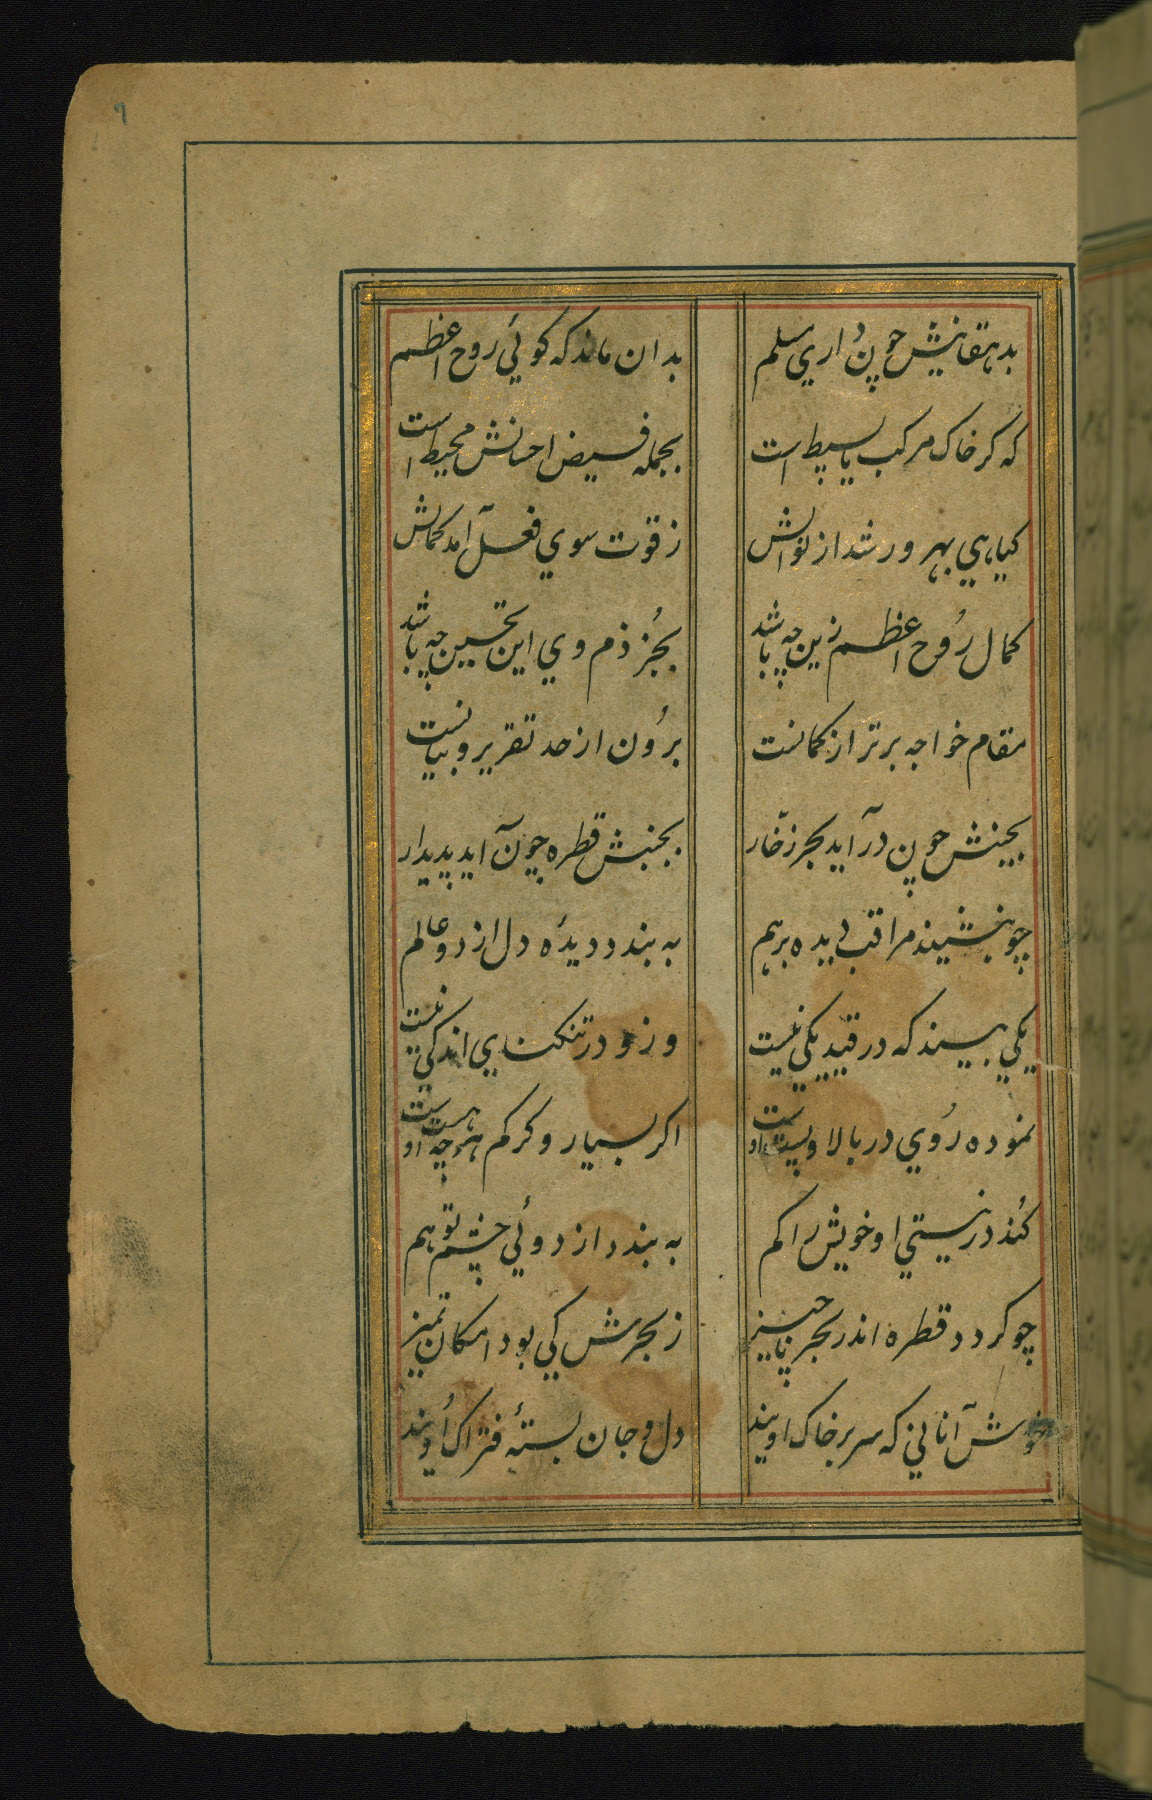 ٦
بدهقانیش چون داری مسلم بدان ماند که کوئی روح اعظم
که کر خاک مرکب یا بسیط است بجمله فیض احسانش محیط است
کیاهی بهرور شد از نوالش ز قوت سوی فعل آمد کمالش
کمال رُوح اعظم زین چه باشد بجُز ذم وی این تحسین چه باشد
مقام خواجه برتر از کمانست برُون از حد تقریر و بیانست
بجنبش چون درآید بحر زخّار بجنبش قطره چون آید پدیدار
چو بنشیند مراقب دیده برهم به بندد دیدهٔ دل از دو عالم
یکی بیند که در قید یکی نیست وزو در تنکنای اندکی نیست
نموده رُوی در بالا و پست او اکر بسیار و کر کم هرچه هست او
کُند در نیستی او خویش را کم به بندد از دوئی چشم توهم
چو کردد قطره اندر بحر ناچیز ز بحرش کی بود امکان تمیز
خوش آنانی که سر بر خاک اویند دل و جان بستهٔ فتراک اُویند